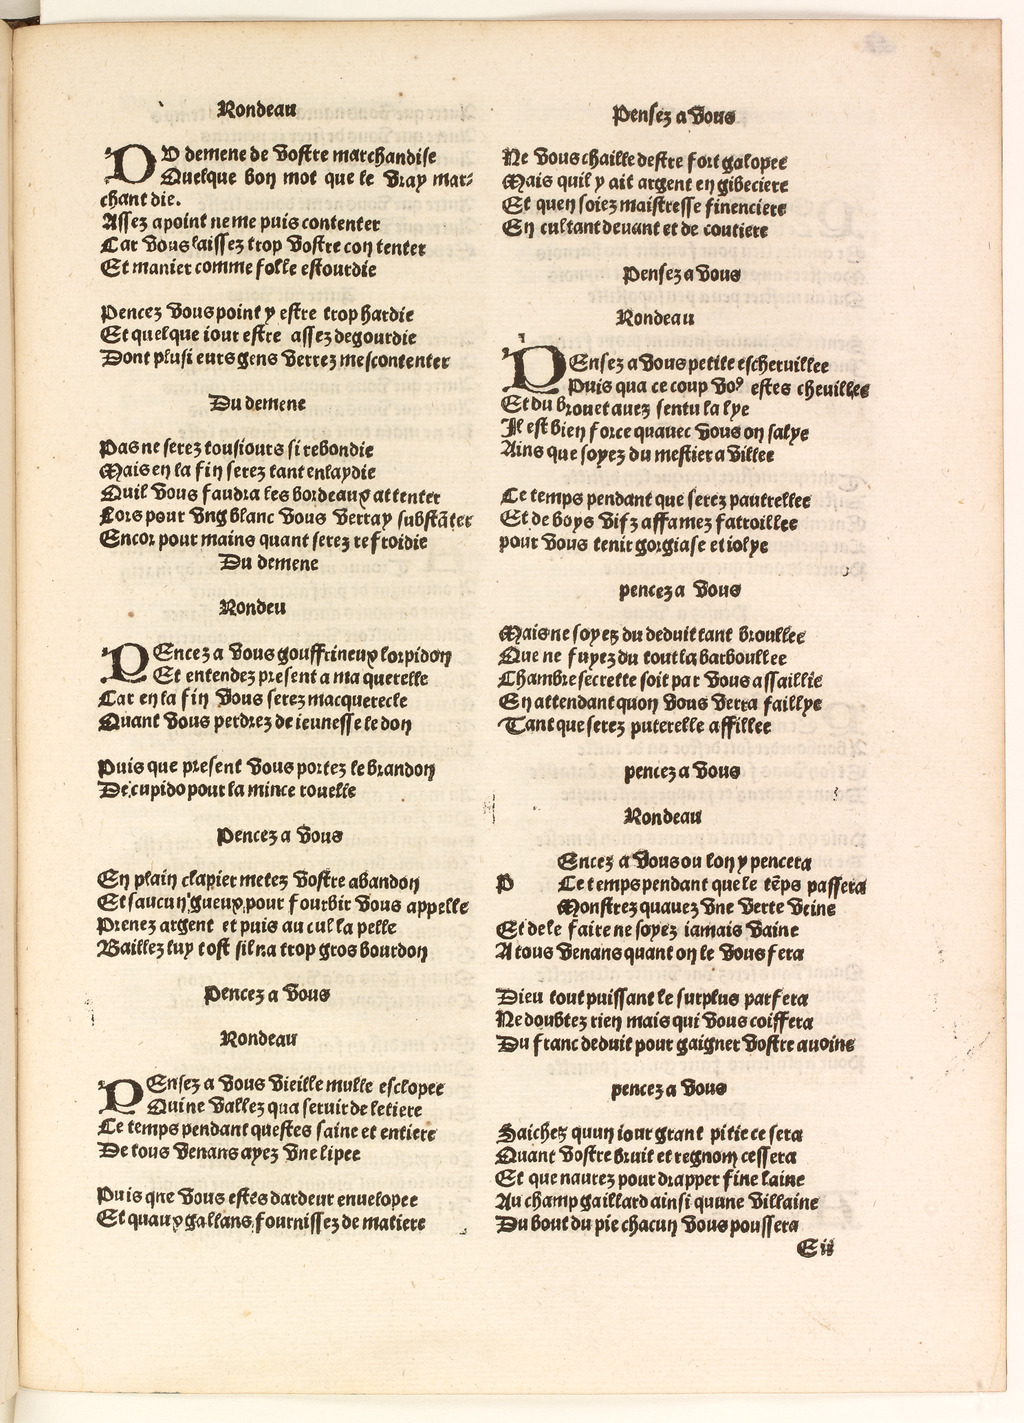 Rondeau
DU demene de vostre marchandise
Quelque bon mot que le vray mar-
chant die.
Assez apoint ne me puis contenter
Car vous laissez trop vostre con tenter
Et manier comme folle estourdie
Pencez vous point y estre trop hardie
Et quelque iour estre assez degourdie
Dont plusi eurs gens verrez mescontenter
Du demene
Pas ne serez tousiours si rebondie
Mais en la fin serez tant enlaydie
Quil vous faudra les bordeaux attenter
Lors pour ung blanc vous verray substãter
Encor pour mains quant serez refroidie
Du demene
Rondeu
PEncez a vous gouffrineux lorpidon
Et entendez present a ma querelle
Car en la fin vous serez macquerecle
Quant vous perdrez de ieunesse le don
Puis que present vous portez le brandon
De cupido pour la mince rouelle
Pencez a vous
En plain clapier metez vostre abandon
Et saucun gueux pour fourbir vous appelle
Prenez argent et puis au cul la pelle
Baillez luy tost sil na trop gros bourdon
Pencez a vous
Rondeau
PEnsez a vous vieille mulle esclopee
Qui ne vallez qua seruir de letiere
Ce temps pendant questes saine et entiere
De tous venans ayez vne lipee
Puis qne vous estes dardeur enuelopee
Et quaux gallans fournissez de matiere
Pensez a vous
Ne vous chaille destre fort galopee
Mais quil y ait argent en gibeciere
Et quen soiez maistresse financiere
En cultant deuant et de coutiere
Pensez a vous
Rondeau
PEnsez a vous petite escheruillee
Puis qua ce coup vo⁹ estes cheuillee
Et du brouet auez sentu la lye
Il est bien force quauec vous on salye
Ains que soyez du mestier a villee
Ce temps pendant que serez pautrellee
Et de boys vifz affamez fatroillee
pour vous tenir gorgiase et iolye
pencez a vous
Mais ne soyez du deduit tant broullee
Que ne fuyez du tout la barboullee
Chambre secrette soit par vous assaillie
En attendant quon vous verra faillye
Tant que serez puterelle affillee
pencez a vous
Rondeau
Encez a vous ou lon y pencera
P Ce temps pendant que le tẽps passera
Monstrez quauez vne verte veine
Et de le faire ne soyez iamais vaine
A tous venans quant on le vous fera
Dieu tout puissant le surplus parfera
Ne doubtez rien mais qui vous coiffera
Du franc deduit pour gaigner vostre auoine
pencez a vous
Saichez quun iour grant pitie ce sera
Quant vostre bruit et regnom cessera
Et que naurez pour drapper fine laine
Au champ gaillard ainsi quune villaine
Du bout du pie chacun vous poussera
E ii